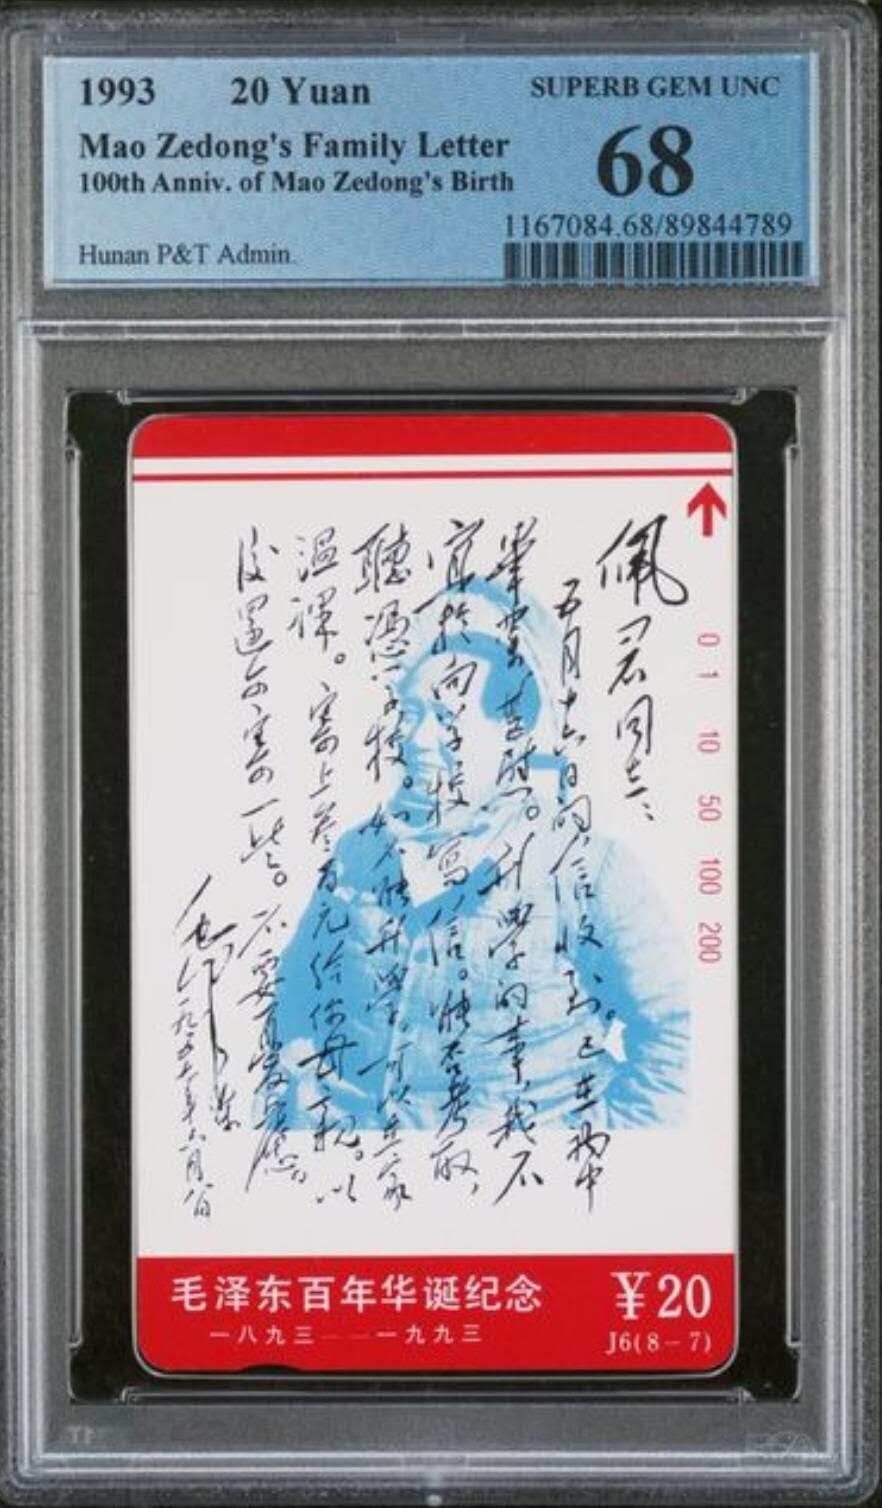 1993 20 Yuan
SUPERB GEM UNC
Mao Zedong's Family Letter
68
100th Anniv. of Mao Zedong's Birth
1167084.68/89844789
Hunan P&T Admin.
0 1 10 50 100 200
佩君同志：
五月十六日的信收到。已在初中
畢業，甚慰。升學的事，我不
宜於向学校寫信。能否考取，
聽憑学校。如不能升學，可以在家
温習。寄上叁百元给你母親。以
後還可寄一些。不要有憂慮。
毛泽东
六月八日
毛泽东百年华诞纪念
¥20
一八九三——一九九三
J6(8-7)